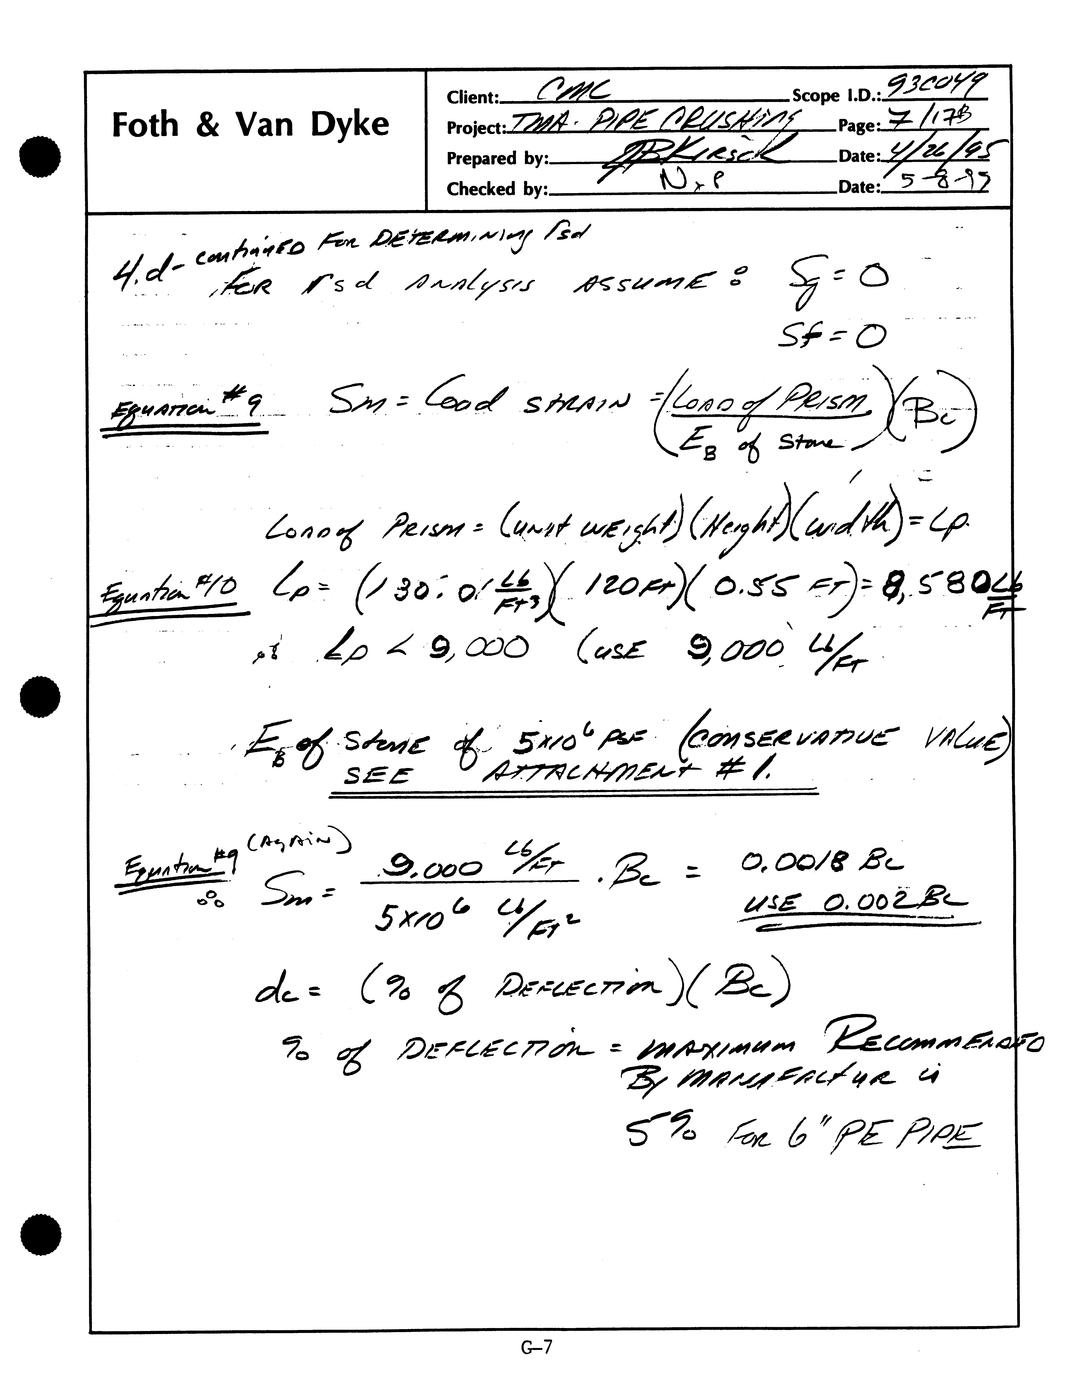 Foth & Van Dyke
Client: CMC Scope I.D.: 93C049
Project: TMA - PIPE CRUSHING Page: 7/17B
Prepared by: JBKirsch Date: 4/26/95
Checked by: Date:
4.d - continued For DETERMINING rsd
FOR rsd ANALYSIS ASSUME: Sg = 0
Sf = 0
Equation #9 Sm = Load STRAIN = (LOAD of PRISM / EB of Stone)(Bc)
LOAD of PRISM = (unit WEIGHT)(Height)(width) = Lp.
Equation #10 Lp = (130.0 Lb/Ft3)(120 Ft)(0.55 FT) = 8,580 Lb/FT
∴ Lp < 9,000 (USE 9,000 Lb/FT
EB of STONE of 5x10^6 PSF (CONSERVATIVE VALUE)
SEE ATTACHMENT #1.
Equation #9 (AGAIN)
∴ Sm = 9.000 Lb/FT / 5x10^6 Lb/FT2 · Bc = 0.0018 Bc
USE 0.002 Bc
dc = (% of DEFLECTION)(Bc)
% of DEFLECTION = MAXIMUM RECOMMENDED
By MANUFACTUR is
5% FOR 6" PE PIPE
G-7